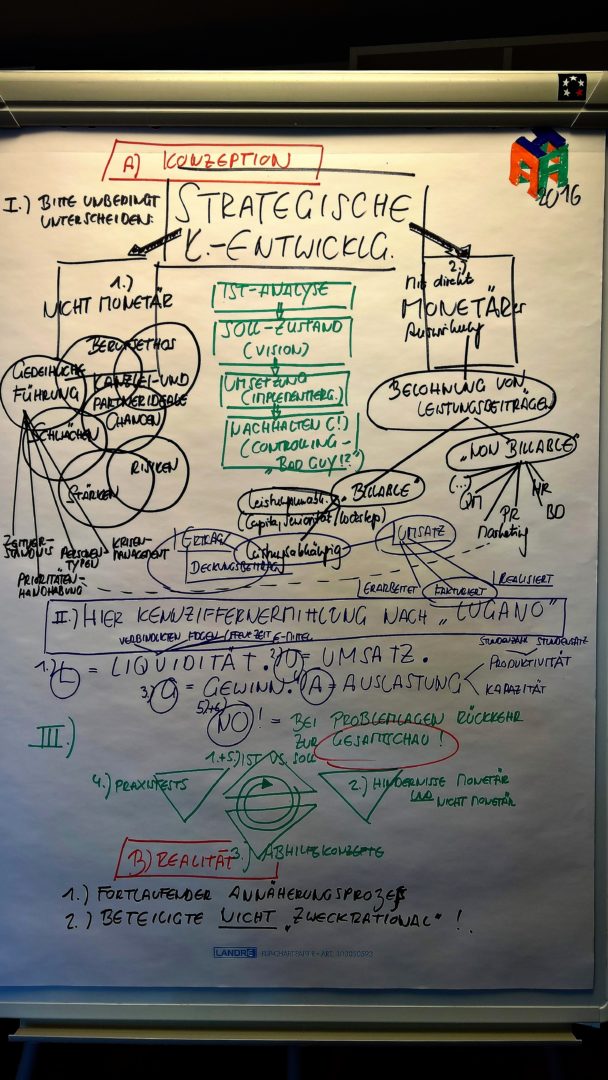 A) KONZEPTION
2016
I.) BITTE UNBEDINGT
UNTERSCHEIDEN:
STRATEGISCHE
K.-ENTWICKLG.
1.)
NICHT MONETÄR
2.)
Mit direkt
MONETÄRer
Auswirkung
IST-ANALYSE
SOLL-ZUSTAND
(VISION)
UMSETZUNG
(IMPLEMENTIERG.)
NACHHALTEN (!)
(CONTROLLING-
„BAD GUY!?"
BERUFSETHOS
GEDEIHLICHE
FÜHRUNG
KANZLEI-UND
PARTNERIDEALE
CHANCEN
SCHWÄCHEN
RISIKEN
STÄRKEN
ZEITVER-
STÄNDNIS
PRIORITÄTEN-
HANDHABUNG
PERSONEN-
TYPEN
KRISEN-
MANAGEMENT
BELOHNUNG VON
LEISTUNGSBEITRÄGEN
„NON BILLABLE"
(...)
QM
PR
Marketing
HR
BD
„BILLABLE"
Leistungsunabh.
(Capita, Seniorität / Lockstep)
Leistungsabhängig
ERTRAG
DECKUNGSBEITRAG
UMSATZ
ERARBEITET
FAKTURIERT
REALISIERT
II.) HIER KENNZIFFERNERMITTLUNG NACH „LUGANO"
STUNDENZAHL STUNDENSATZ
1.) L = LIQUIDITÄT. 2.) U = UMSATZ.
3.) G = GEWINN. 4.) A = AUSLASTUNG
PRODUKTIVITÄT
KAPAZITÄT
5.)+6.)
NO! = BEI PROBLEMLAGEN RÜCKKEHR
ZUR GESAMTSCHAU!
III.)
1.+5.) IST VS. SOLL
4.) PRAXISTESTS
2.) HINDERNISSE MONETÄR
UND
NICHT MONETÄR
3.) ABHILFEKONZEPTE
B) REALITÄT
1.) FORTLAUFENDER ANNÄHERUNGSPROZEß
2.) BETEILIGTE NICHT „ZWECKRATIONAL" !
LANDRÉ FLIPCHARTPAPIER • ART.